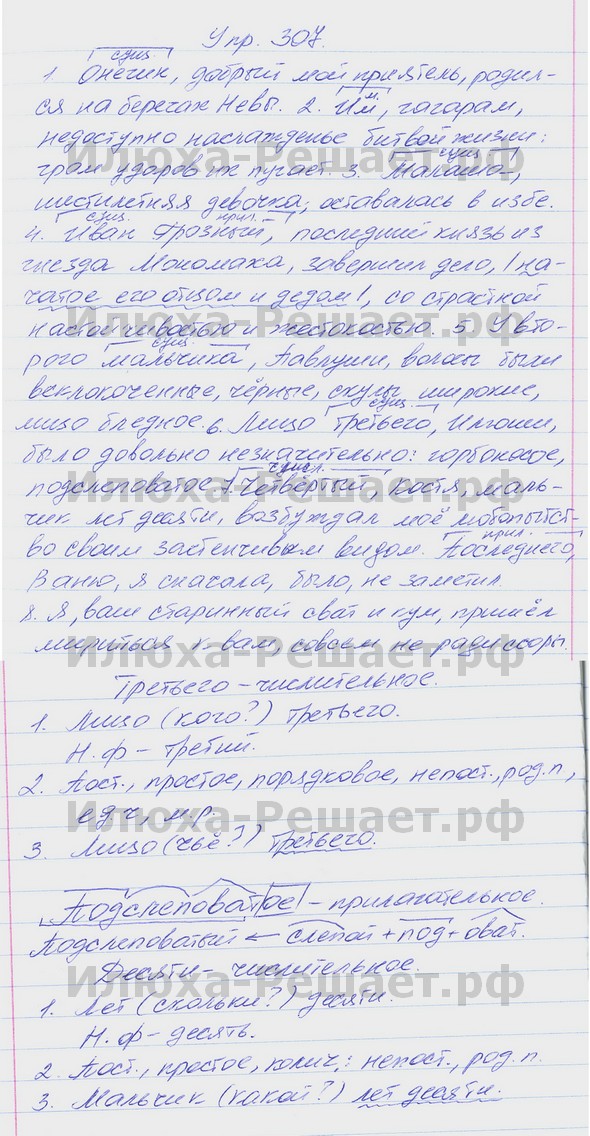 Упр. 307.
сущ.
1. Онегин, добрый мой приятель, родил-
ся на берегах Невы. 2. Им, гагарам,
м.
недоступно наслажденье битвой жизни:
гром ударов их пугает. 3. Маланью-,
сущ.
шестилетняя девочка, оставалась в избе.
сущ. прил.
4. Иван Грозный, последний князь из
гнезда Мономаха, завершил дело, | на-
чатое его отцом и дедом |, со страстной
настойчивостью и жестокостью. 5. У вто-
сущ.
рого мальчика, Павлуши, волосы были
всклокоченные, чёрные, скулы широкие,
сущ.
лицо бледное. 6. Лицо третьего, Илюши,
было довольно незначительно: горбоносое,
числ.
подслеповатое. 7. Четвёртый, Костя, маль-
чик лет десяти, возбуждал моё любопытст-
прил.
во своим застенчивым видом. Последнего,
Ваню, я сначала, было, не заметил.
8. Я, ваш старинный сват и кум, пришёл
мириться к вам, совсем не ради ссоры.
Третьего – числительное.
1. Лицо (кого?) третьего.
Н.ф – третий.
2. Пост., простое, порядковое, непост., род.п,
ед ч, м.р.
3. Лицо (чьё?) третьего.
Подслеповатое – прилагательное.
Подслеповатый ← слепой + под + оват.
Десяти – числительное.
1. Лет (скольки?) десяти.
Н.ф – десять.
2. Пост., простое, колич.: непост., род.п.
3. Мальчик (какой?) лет десяти.
Илюха-Решает.рф
Илюха-Решает.рф
Илюха-Решает.рф
Илюха-Решает.рф
Илюха-Решает.рф
Илюха-Решает.рф
Илюха-Решает.рф